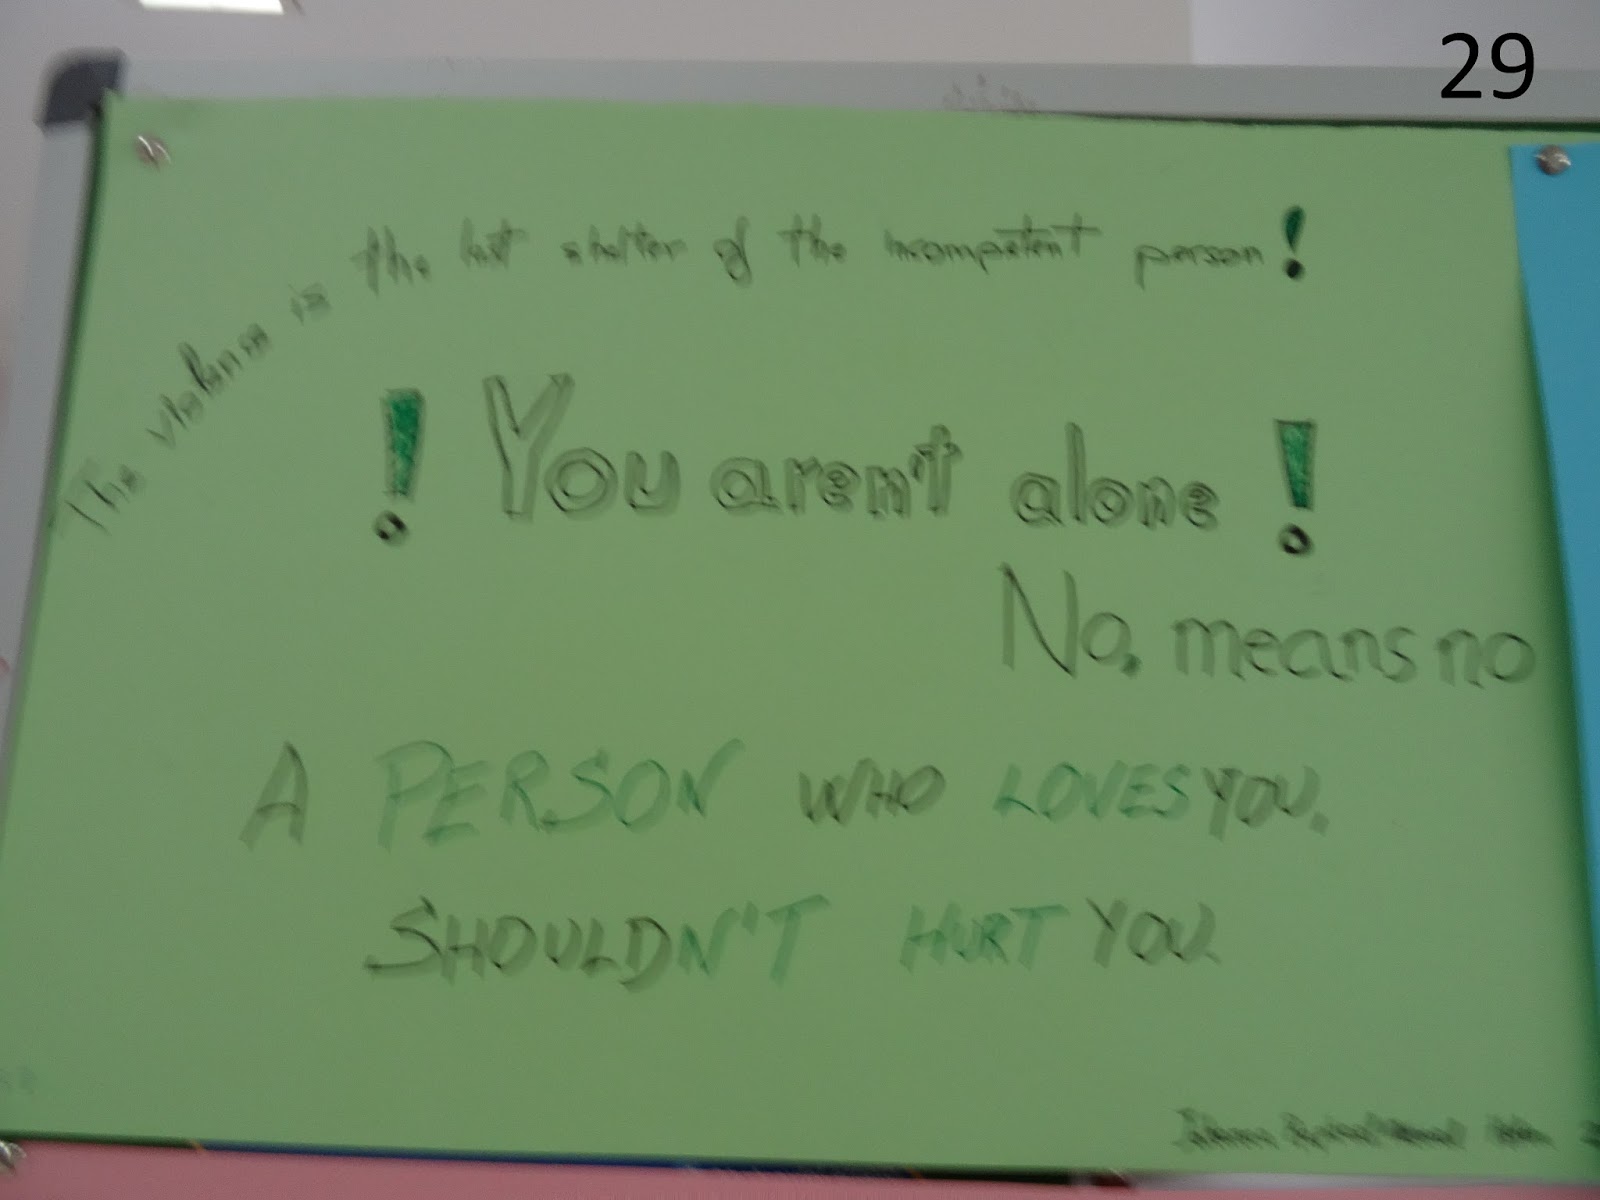 29
The violence is the last shelter of the incompetent person!
! You aren't alone !
No, means no
A PERSON WHO LOVES YOU.
SHOULDN'T HURT YOU.